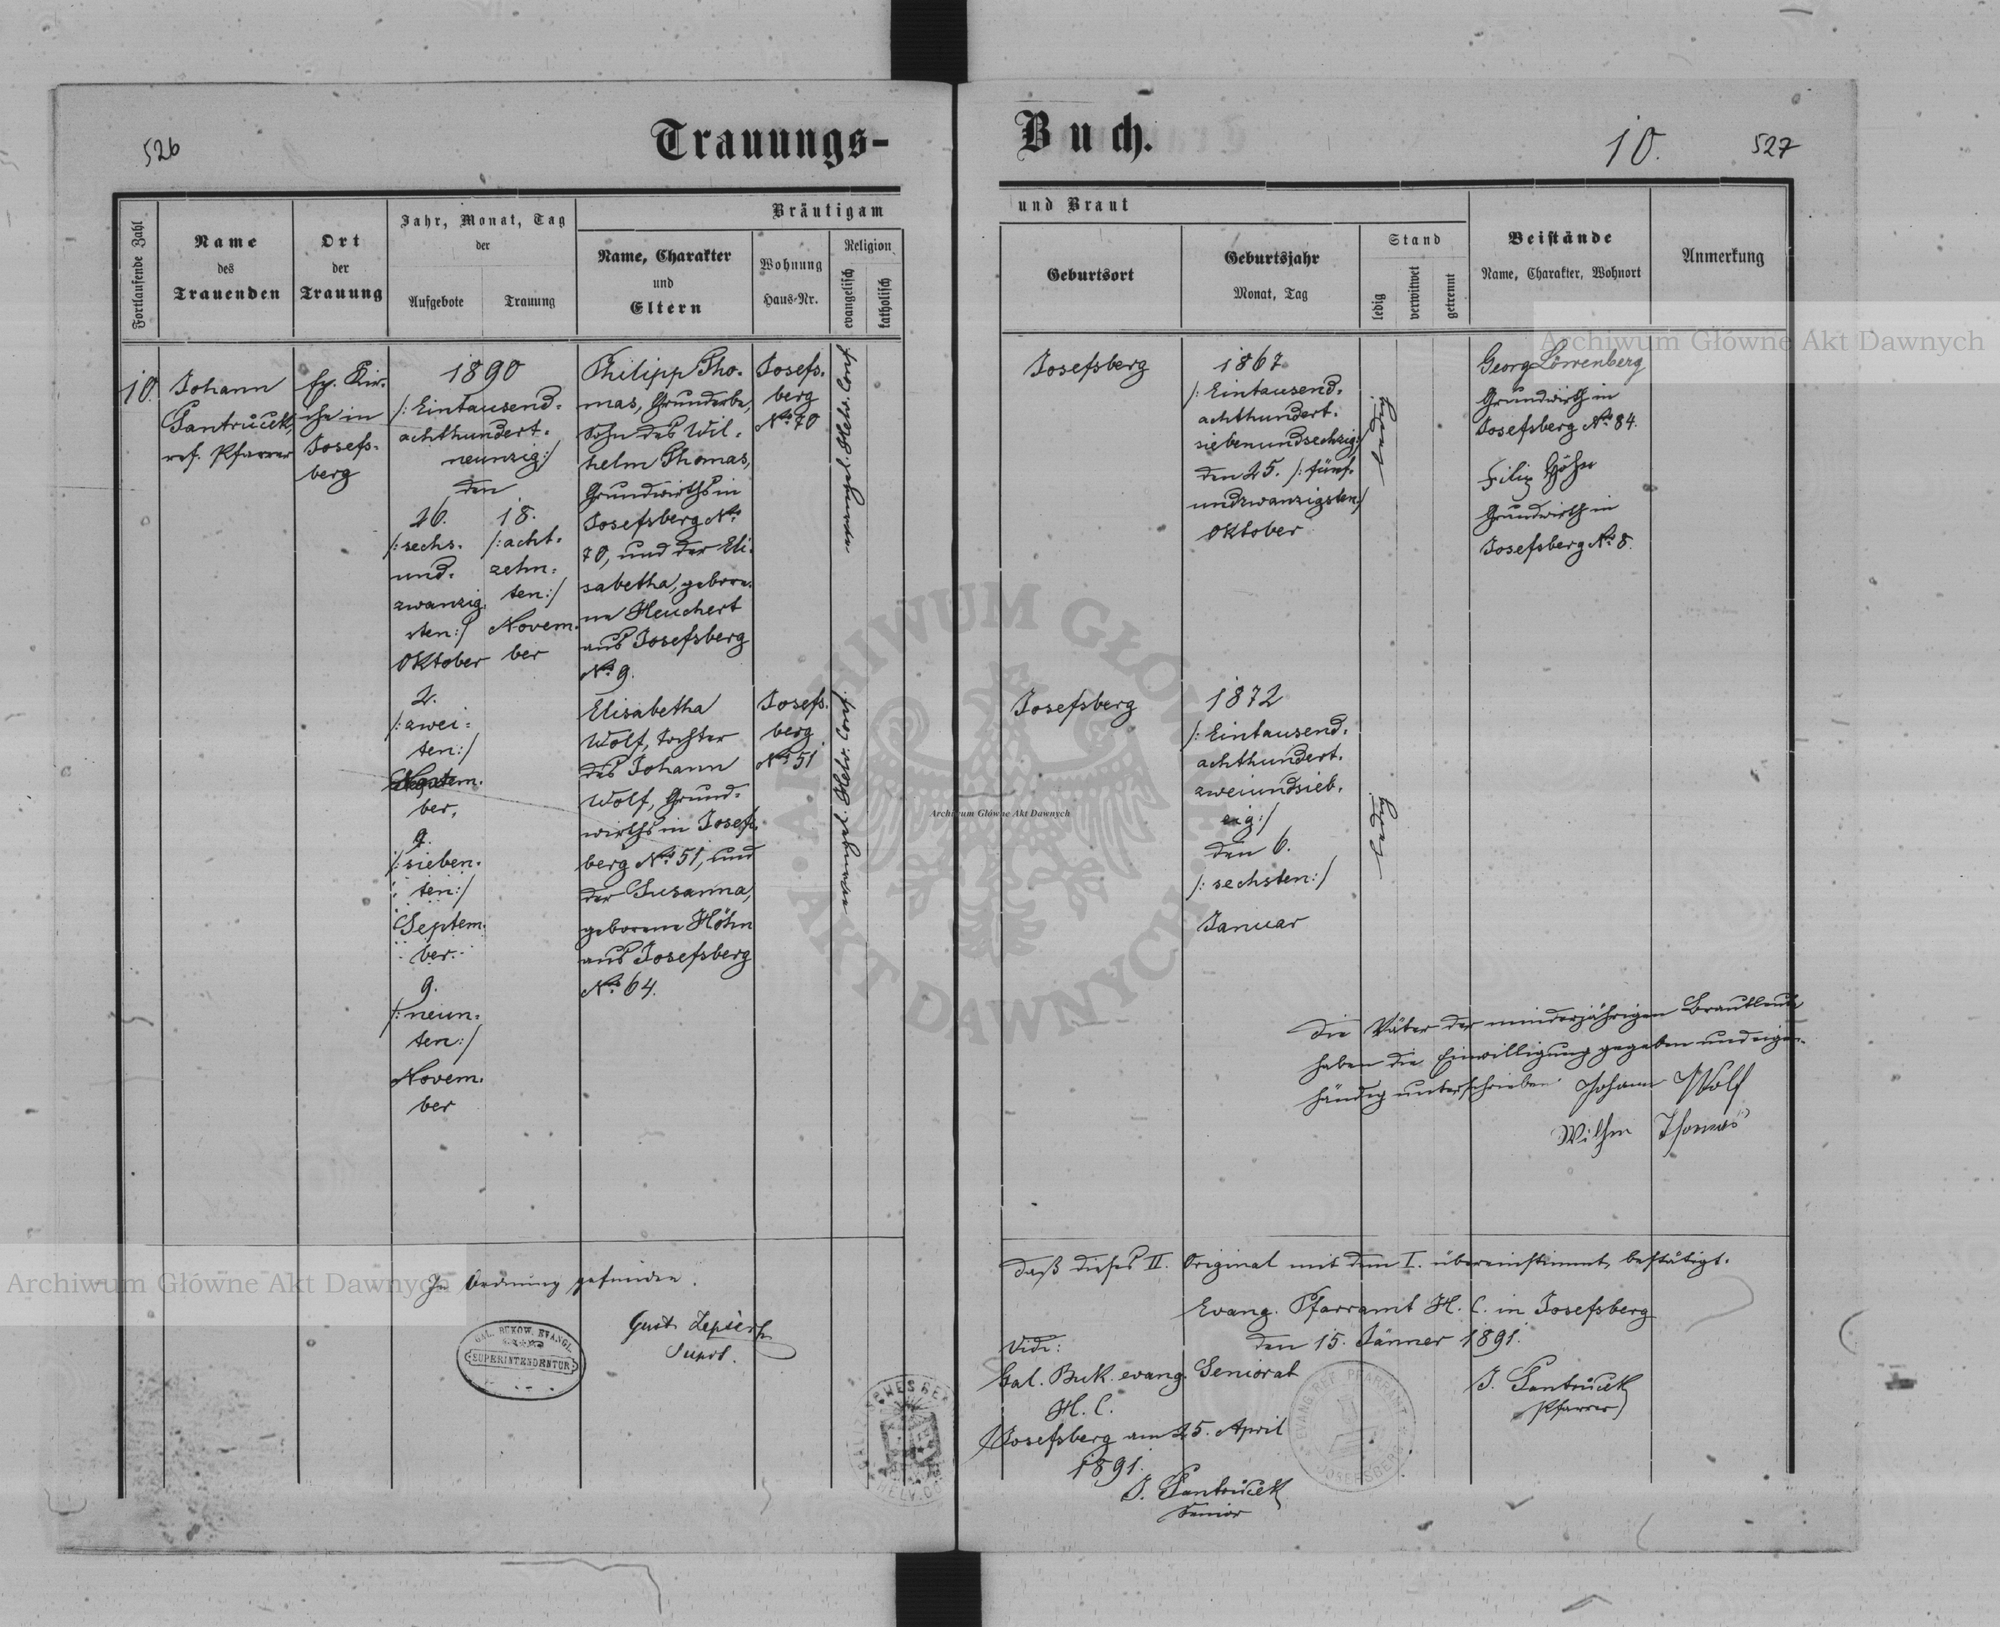 526
Trauungs-
Buch.
10.
527
Fortlaufende Zahl
Name
des
Trauenden
Ort
der
Trauung
Jahr, Monat, Tag
der
Aufgebote
Trauung
Bräutigam
Name, Charakter
und
Eltern
Wohnung
Haus-Nr.
Religion
evangelisch
katholisch
und Braut
Geburtsort
Geburtsjahr
Monat, Tag
Stand
ledig
verwitwet
getrennt
Beistände
Name, Charakter, Wohnort
Anmerkung
10.
Johann
Pantrůček,
ref. Pfarrer
Ev. Kir-
che in
Josefs-
berg
1890
/: Eintausend-
achthundert-
neunzig :/
den
26.
/: sechs-
und-
zwanzig-
sten :/
Oktober
18.
/: acht-
zehn-
ten :/
Novem-
ber
2.
/: zwei-
ten :/
ber,
9.
/: sieben-
ten :/
Septem-
ber
9.
/: neun-
ten :/
Novem-
ber
Philipp Tho-
mas, Grunderbe,
Sohn des Wil-
helm Thomas,
Grundwirths in
Josefsberg No
70, und der Eli-
sabetha, gebore-
ne Heuchert
aus Josefsberg
No 9.
Josefs-
berg
No 70
evangel. Helv. Conf.
Elisabetha
Wolf, Tochter
des Johann
Wolf, Grund-
wirths in Josefs-
berg No 51, und
der Susanna,
geborene Höhn
aus Josefsberg
No 64.
Josefs-
berg
No 51
evangel. Helv. Conf.
Josefsberg
1867
/: Eintausend-
achthundert-
siebenundsechzig :/
den 25. /: fünf-
undzwanzigsten :/
Oktober
ledig
Georg Löwenberg
Grundwirth in
Josefsberg No 84.
Filip Höhn
Grundwirth in
Josefsberg No 8.
Josefsberg
1872
/: Eintausend-
achthundert-
zweiundsieb-
zig :/
den 6.
/: sechsten :/
Januar
ledig
Die Väter der minderjährigen Brautleute
haben die Einwilligung gegeben und eigen-
händig unterschrieben. Johann Wolf
Wilhm Thomas
In Ordnung gefunden.
Supdt.
GAL. BUKOW. EVANGL.
SUPERINTENDENTUR
Daß dieses II. Original mit dem I. übereinstimmt, bestätigt.
Evang. Pfarramt H. C. in Josefsberg
den 15. Jänner 1891.
J. Pantrůček
Pfarrer
Vidi:
Gal. Buk. evang. Seniorat
H. C.
Josefsberg am 25. April
1891.
J. Pantrůček
Senior
EVANG. REF. PFARRAMT
JOSEFSBERG
Archiwum Główne Akt Dawnych
Archiwum Główne Akt Dawnych
Archiwum Główne Akt Dawnych
ARCHIWUM GŁÓWNE
AKT DAWNYCH